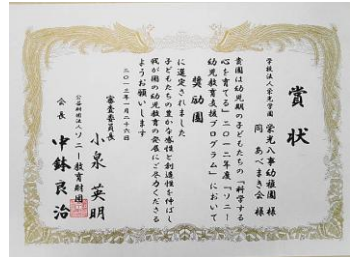 賞状
学校法人栄光学園
栄光八事幼稚園様
同 あべまき会 様
貴園は幼児期の子どもたちの「科学する
心を育てる」二〇一二年度「ソニー
幼児教育支援プログラム」において
奨励園
に選定されました
子どもたちの豊かな感性と創造性を伸ばし
我が国の幼児教育の発展にご尽力くださる
ようお願いします
二〇一三年一月二十六日
審査委員長
小泉 英明
公益財団法人ソニー教育財団
会長
中鉢良治